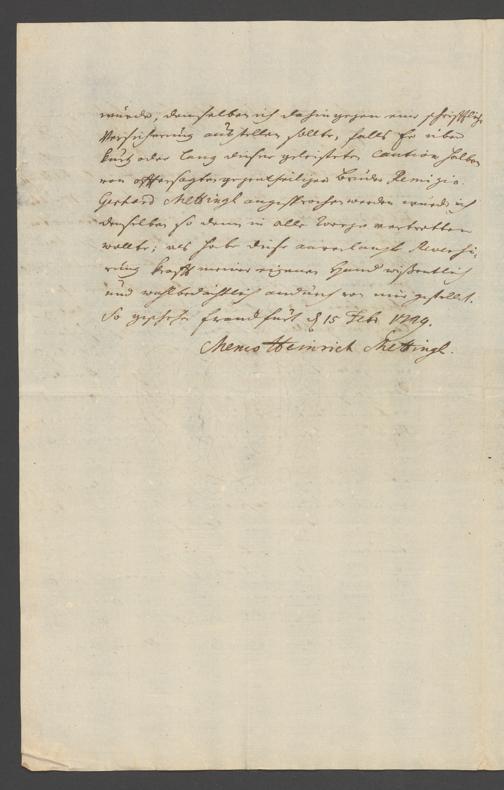 würde, demselben ich dahingegen eine schrifftliche
Versicherung ausstellen sollte, falls Er über
kurtz oder lang dieser geleisteten Caution halber
von offtersagtem gegentheiligen Bruder Remigio
Gerhard Mettingh angesprochen werden würde, ich
denselben so dann in alle Weege vertretten
wollte; als habe diese anverlangte Reversi-
rung krafft meiner eigenen Hand wißentlich
und wohlbedächtlich andurch von mir gestellt.
So geschehen Franckfurt d 15 Feb:
Menco Heinrich Mettingh.